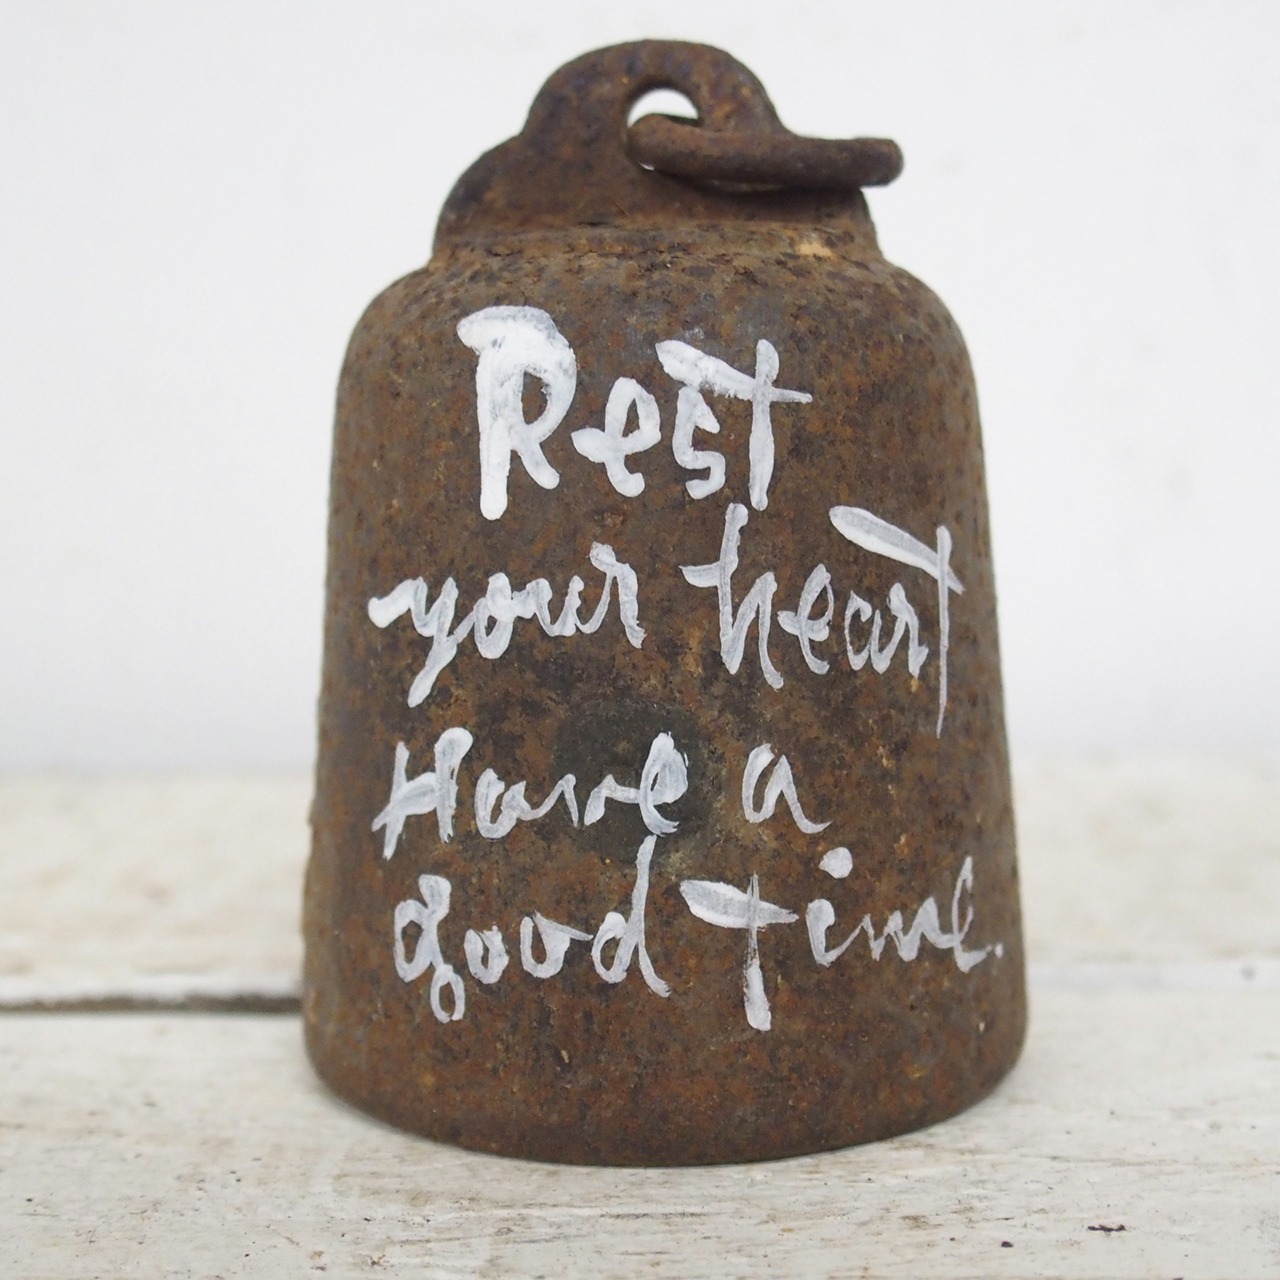 Rest
your heart
Have a
good time.